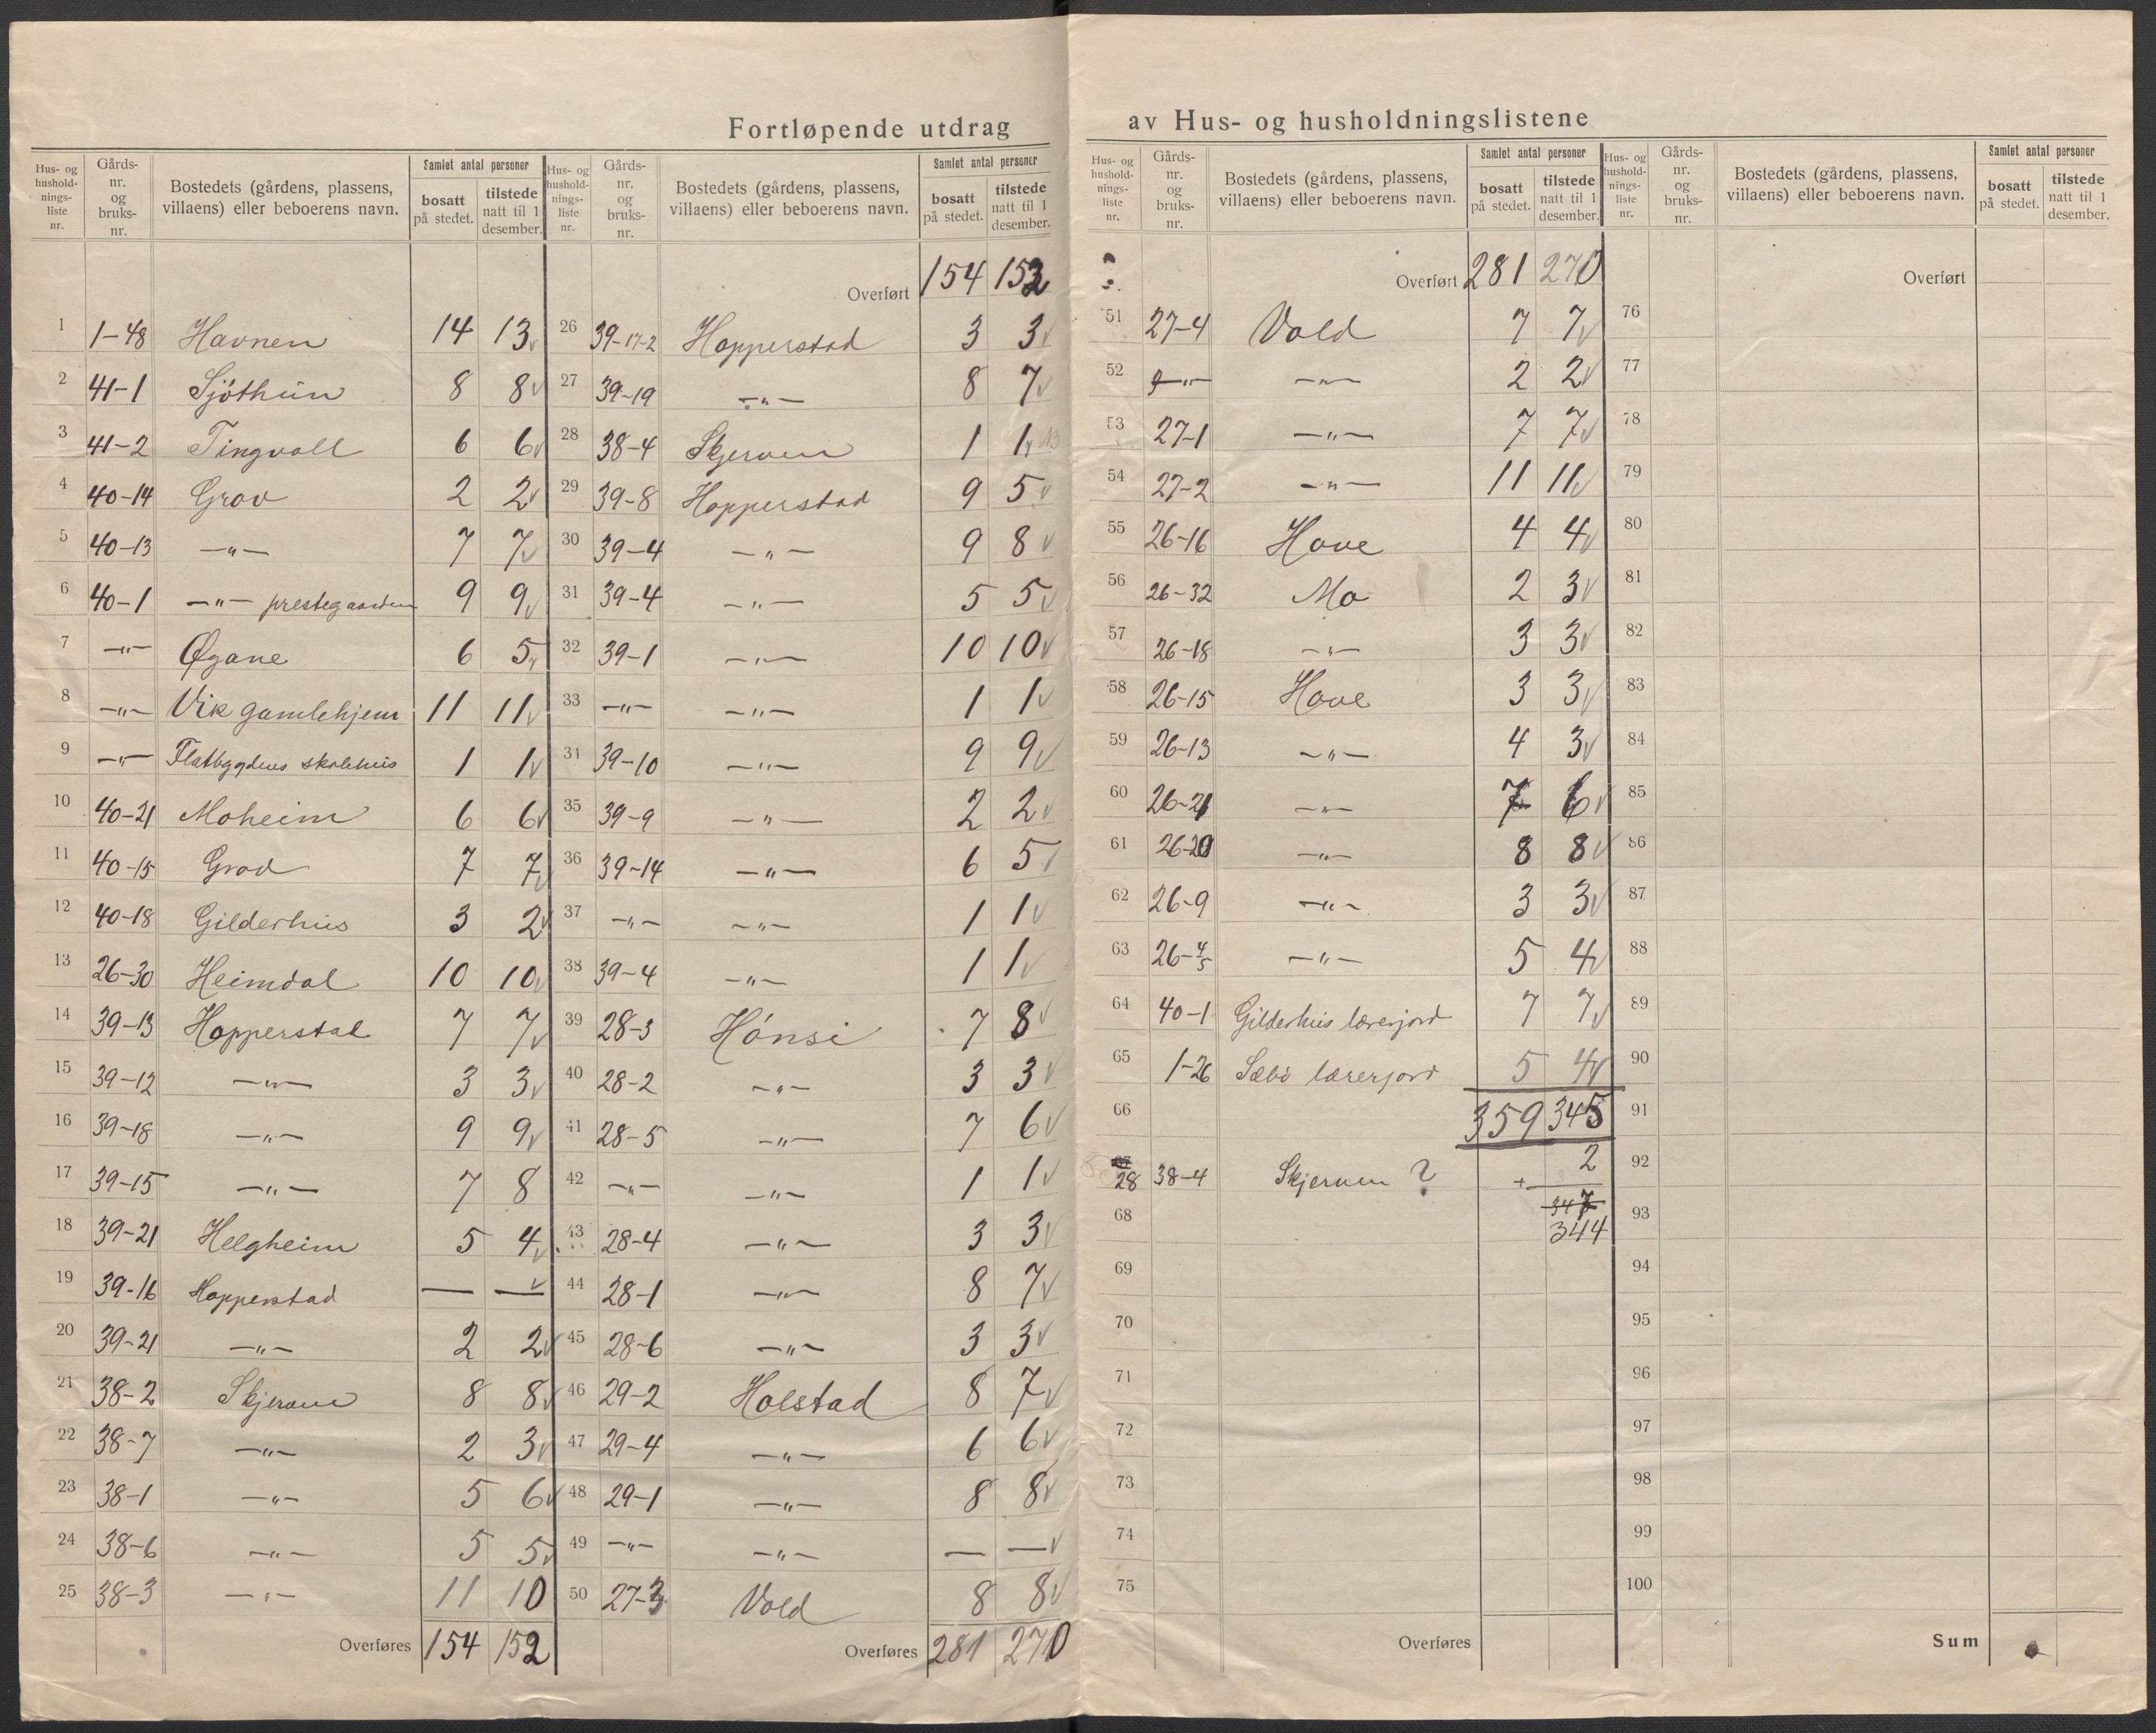 Fortløpende utdrag av Hus- og husholdningslistene
Hus- og husholdningsliste nr. | Gårds-nr. og bruks-nr. | Bostedets (gårdens, plassens, villaens) eller beboerens navn. | Samlet antal personer | bosatt på stedet. | tilstede natt til 1 desember.
1 1-48 Havnen 14 13
2 41-1 Sjöthun 8 8
3 41-2 Tingvoll 6 6
4 40-14 Grov 2 2
5 40-13 —"— 7 7
6 40-1 —"— prestegaarden 9 9
7 —"— Øgane 6 5
8 —"— Vik gamlehjem 11 11
9 —"— Flatbygdens skolehus 1 1
10 40-21 Moheim 6 6
11 40-15 Grov 7 7
12 40-18 Gilderhus 3 2
13 26-30 Heimdal 10 10
14 39-13 Hopperstad 7 7
15 39-12 —"— 3 3
16 39-18 —"— 9 9
17 39-15 —"— 7 8
18 39-21 Helgheim 5 4
19 39-16 Hopperstad — —
20 39-21 —"— 2 2
21 38-2 Skjerven 8 8
22 38-7 —"— 2 3
23 38-1 —"— 5 6
24 38-6 —"— 5 5
25 38-3 —"— 11 10
Overføres 154 152
Hus- og husholdningsliste nr. | Gårds-nr. og bruks-nr. | Bostedets (gårdens, plassens, villaens) eller beboerens navn. | Samlet antal personer | bosatt på stedet. | tilstede natt til 1 desember.
Overført 154 152
26 39-17-2 Hopperstad 3 3
27 39-19 —"— 8 7
28 38-4 Skjerven 1 1
29 39-8 Hopperstad 9 5
30 39-4 —"— 9 8
31 39-4 —"— 5 5
32 39-1 —"— 10 10
33 —"— —"— 1 1
34 39-10 —"— 9 9
35 39-9 —"— 2 2
36 39-14 —"— 6 5
37 —"— —"— 1 1
38 39-4 —"— 1 1
39 28-3 Hónsi 7 8
40 28-2 —"— 3 3
41 28-5 —"— 7 6
42 —"— —"— 1 1
43 28-4 —"— 3 3
44 28-1 —"— 8 7
45 28-6 —"— 3 3
46 29-2 Holstad 8 7
47 29-4 —"— 6 6
48 29-1 —"— 8 8
49 —"— —"— — —
50 27-3 Vold 8 8
Overføres 281 270
Hus- og husholdningsliste nr. | Gårds-nr. og bruks-nr. | Bostedets (gårdens, plassens, villaens) eller beboerens navn. | Samlet antal personer | bosatt på stedet. | tilstede natt til 1 desember.
Overført 281 270
51 27-4 Vold 7 7
52 —"— —"— 2 2
53 27-1 —"— 7 7
54 27-2 —"— 11 11
55 26-16 Hove 4 4
56 26-32 Mo 2 3
57 26-18 —"— 3 3
58 26-15 Hove 3 3
59 26-13 —"— 4 3
60 26-21 —"— 7 6
61 26-20 —"— 8 8
62 26-9 —"— 3 3
63 26-4/5 —"— 5 4
64 40-1 Gilderhus lærerjord 7 7
65 1-26 Sæbö lærerjord 5 4
66 359 345
28 38-4 Skjerven ? + 2
347
68 344
69
70
71
72
73
74
75
Overføres
Hus- og husholdningsliste nr. | Gårds-nr. og bruks-nr. | Bostedets (gårdens, plassens, villaens) eller beboerens navn. | Samlet antal personer | bosatt på stedet. | tilstede natt til 1 desember.
Overført
76
77
78
79
80
81
82
83
84
85
86
87
88
89
90
91
92
93
94
95
96
97
98
99
100
Sum